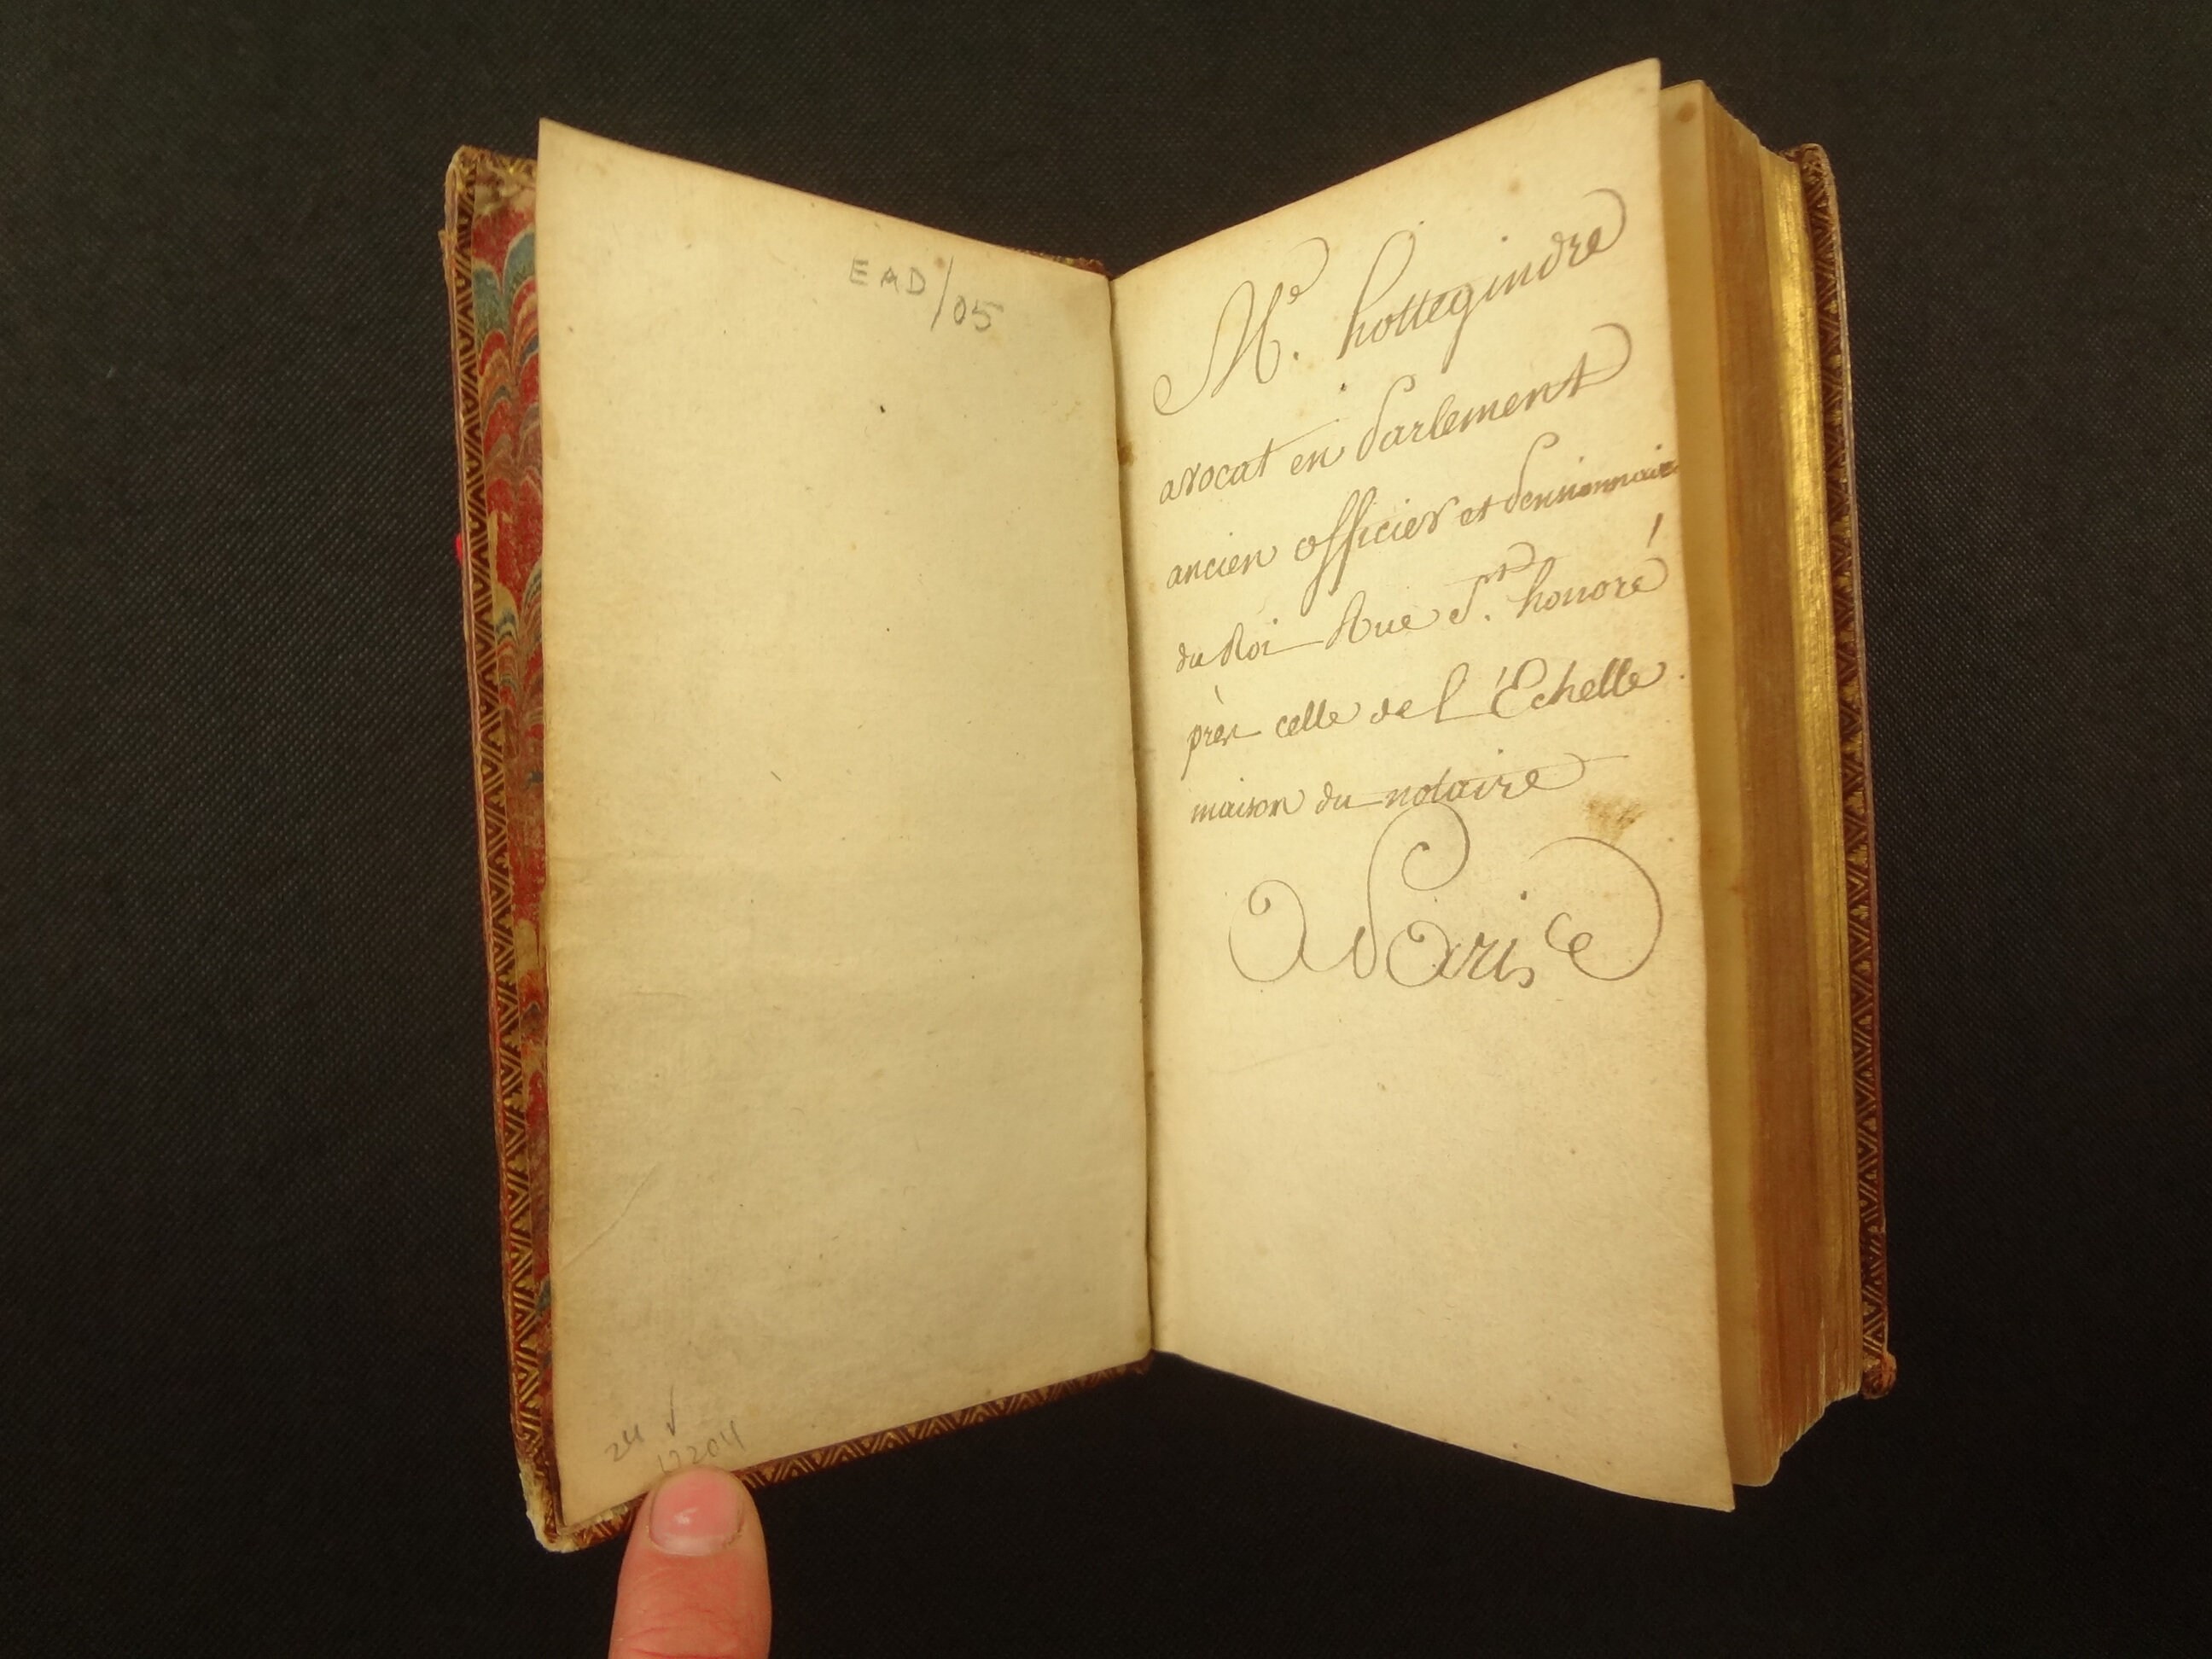 EAD/05
24 √
17204
Mr. hottegindre
avocat en Parlement
ancien officier et Pensionnaire
du Roi Rue St. honoré
près celle de l'Echelle.
maison du notaire
A Paris